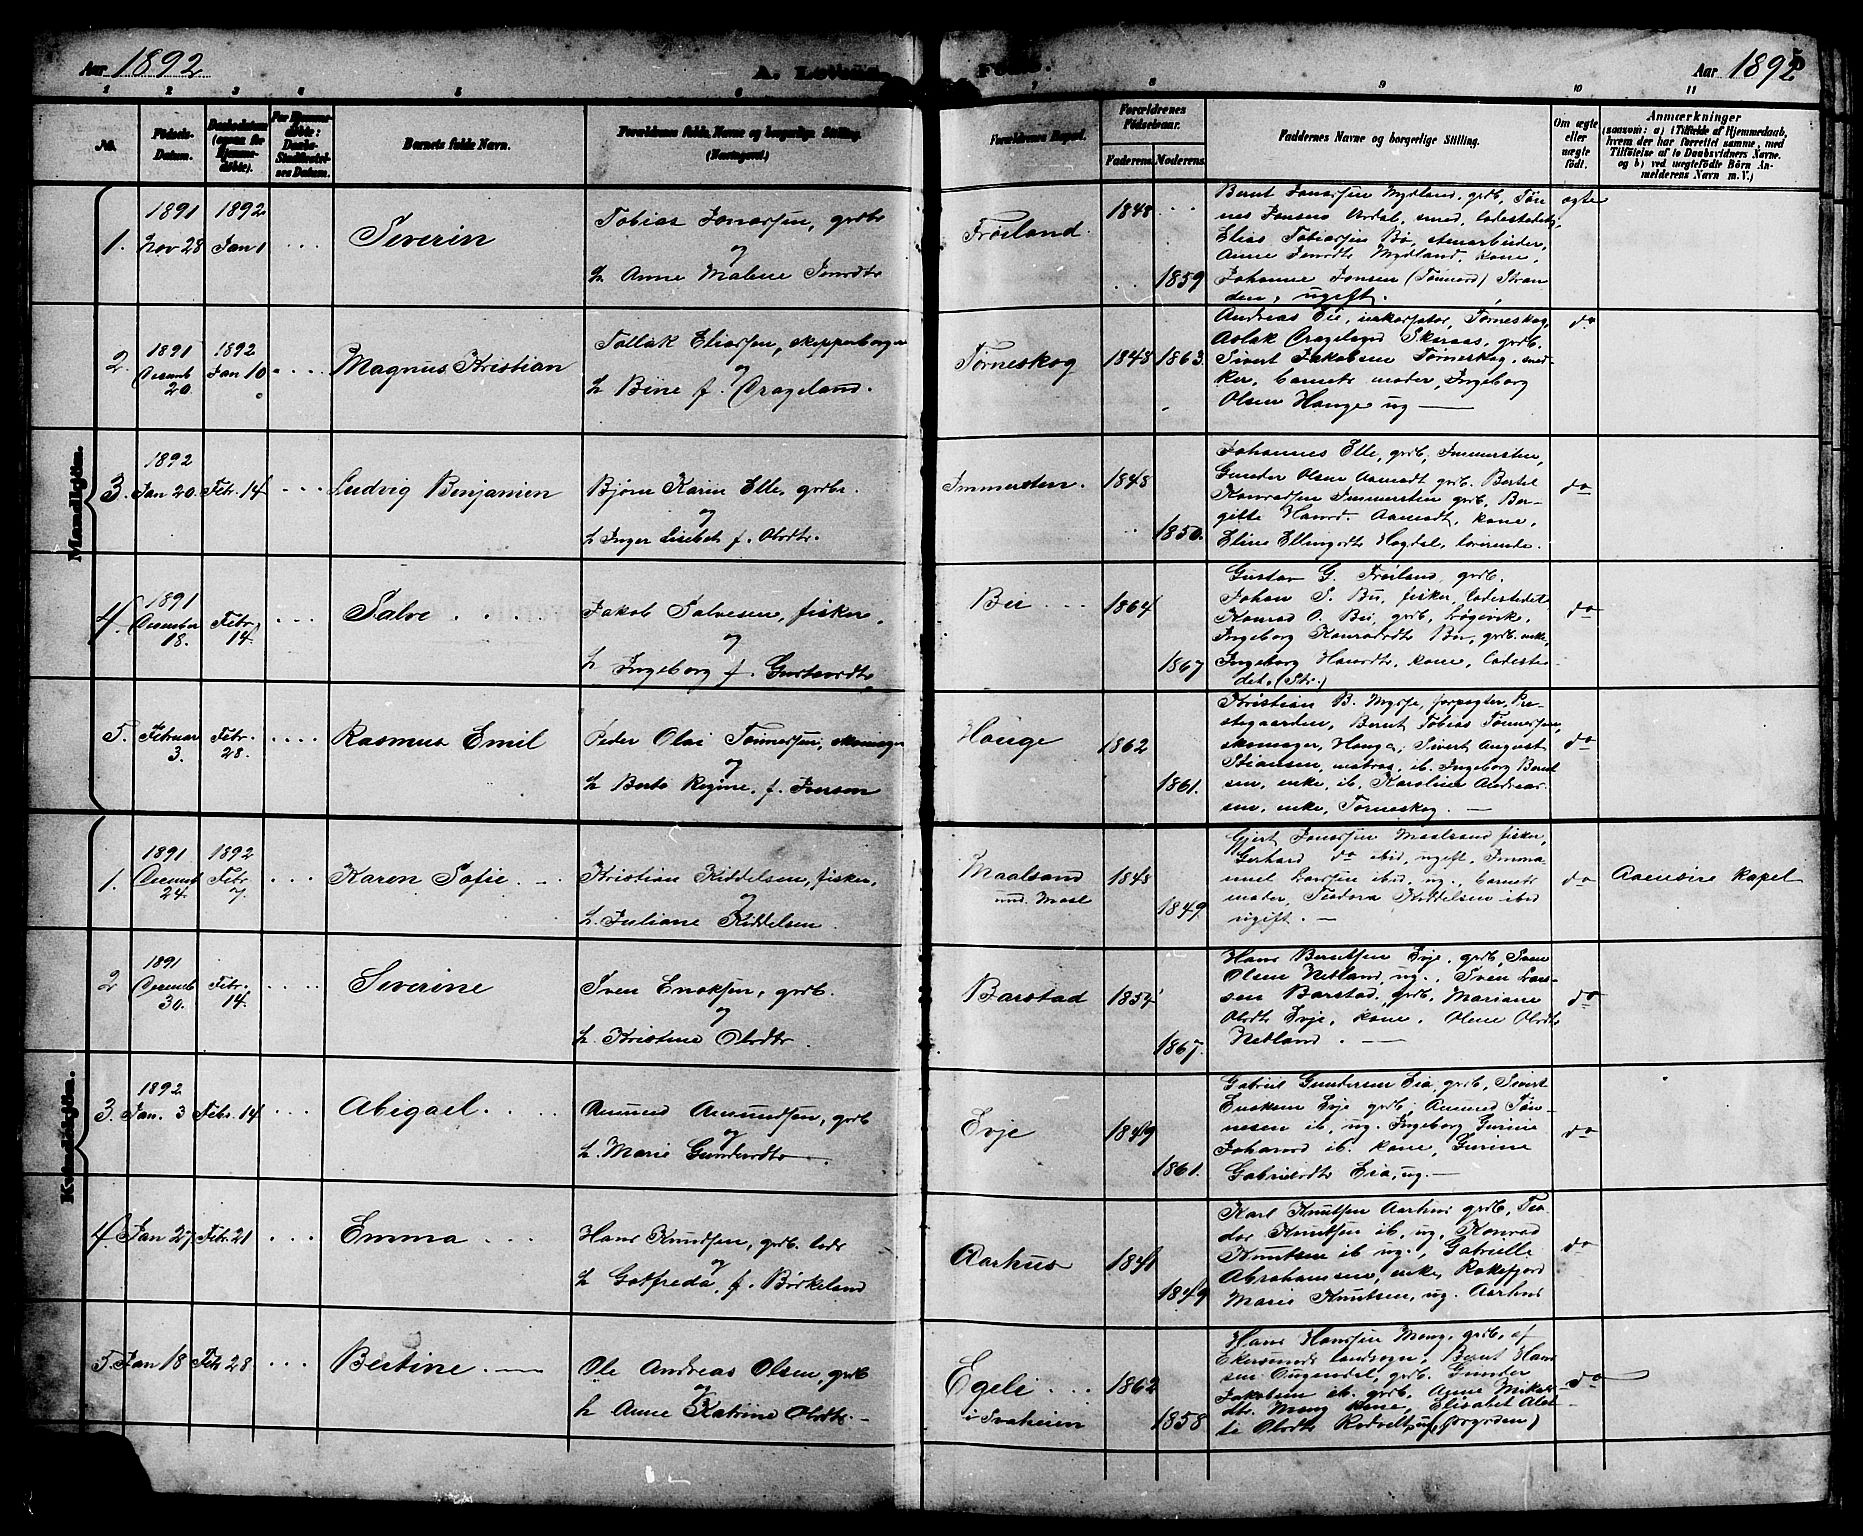 Aar 1892
A. Levende Fødte.
Aar 1892
5
1 2 3 4 5 6 7 8 9 10 11
No.
Fødsels-
Datum.
Daabsdatum
(ogsaa for
Hjemme-
døbte).
For Hjemme-
døbte:
Daabs-
Stadfæstel-
ses Datum.
Barnets fulde Navn.
Forældrenes fulde Navne og borgerlige Stilling.
(Næringsvei.)
Forældrenes Bopæl.
Forældrenes
Fødselsaar.
Faderens. Moderens.
Faddernes Navne og borgerlige Stilling.
Om ægte
eller
uægte
født.
Anmærkninger
(saasom: a) i Tilfælde af Hjemmedaab,
hvem der har forrettet samme, med
Tilføielse af to Daabsvidners Navne.
og b) ved uægtefødte Børn An-
melderens Navn m. V.)
Mandkjøn.
1. 1891 Nov 28 1892 Jan 1 Severin
Tobias Jonassen, grdbr
og
h. Anne Malene Jonsdtr
Frøiland. 1848 1859
Bernt Jonassen Mydland, grdb, Tøn-
nes Jonsen Urdal, smed, ladestedet,
Elias Tobiassen Bø, stenarbeider,
Anne Jonsdtr Mydland, kone,
Johanne Jonsen (Tønnesd) Stran-
den, ugift.
ægte
2. 1891 Decemb 20. 1892 Jan 10 Magnus Kristian
Tollak Eliassen, skipperborger
og
h Bine f. Drageland.
Tørneskog 1848 1863.
Andreas Eie, Tørneskog,
Aslak Drageland Skaraas, grdb.
Sivert Jakobsen Tørneskog, sned-
ker, barnets moder, Ingeborg
Olsen Hauge ug —
do
3. 1892 Jan 20. Febr. 14 Ludvig Benjamin
Bjørn Karin Elle, grdbr.
og
h Inger Lisebet f. Olsdtr.
Immersten. 1848 1850.
Johannes Elle, grdb, Immersten,
Gunder Olsen Aamodt grdb. Bertel
Konradsen Immersten grdb, Ber-
gitte Hansd. Aamodt, kone,
Eline Ellingsdtr Hogdal, lærerinde.
do
4. 1891 December 18. Febr 14. Salve
Jakob Salvesen, fisker,
og
h Ingeborg f. Gustavsdtr
Bu 1864 1867
Gustav G. Frøiland, grdb.
Johan S. Bu, fisker, ladestedet
Konrad O. Bu, grdb,
Ingeborg Konradsdtr Bu, grdb. enke,
Ingeborg Hansdtr, kone, ladeste-
det, (Str.)
do
5. Februar 3. Febr. 28. Rasmus Emil
Peder Olai Tønnessen, skomager
og
h Berte Regine, f. Jonson
Hauge 1862 1861.
Kristian B. Mysse, forpagter, Præ-
stegaarden, Bernt Tobias Tønnessen,
skomager, Hauge, Sivert August
Stiansen, matros, ib. Ingeborg Bernt-
sen, enke, ib. Karoline Andreas-
sen, enke, Tørneskog. —
do
Kvindekjøn.
1. 1891 Decemb 24. 1892 Febr 7. Karen Sofie
Kristian Kiddelsen, fisker,
og
h. Juliane Kiddelsen.
Maalsand
und. Mosl 1848 1849
Gjert Jonassen Maalsand fisker,
Gerhard do ibid, ugift, Imma-
nuel Larssen ibid, ug., barnets
moder, Teodora Kiddelsen ibid
ugift. —
do
Aanesire kapel
2 1891 Decemb 30. Febr. 14. Severine
Sven Enoksen, grdb.
og
h. Kristine Olsdtr
Barstad 1854 1867.
Hans Berntsen Evje, grdb, Sven
Olsen Netland, ug., Sven Lars-
sen Barstad, grdb, Mariane
Olsdtr Evje, kone, Olene Olsdtr
Netland. —
do
3. 1892 Jan. 3 Febr. 14 Abigael
Amund Amundsen, grdb
og
h. Marie Gundersdtr
Evje 1849 1861.
Gabriel Gundersen Eia, grdb, Sivert
Enoksen Evje grdb, Amund Tøn-
nesen ib, ug. Ingeborg Gurine
Johansd ib. kone, Gurine
Gabrielsdtr Eia, ug. —
do
4. Jan 27. Febr. 21 Emma
Hans Knudsen, grdb. lods
og
h Gotfreda, f. Birkeland
Aarhus 1841 1849
Karl Knutsen Aarhus grdb, Teo-
dor Knutsen ib, ug, Konrad
Knutsen ib ug., Gabrielle
Abrahamsen, enke, Rækefjord
Marie Knutsen, ug. Aarhus
do
5. Jan 18 Febr 28 Bertine
Ole Andreas Olsen, grdb
og
h Anne Katrine Olsdtr. —
Egeli
i Svaheien 1862 1858.
Hans Hanssen Mong, grdb, af
Ekersunds landsogn, Bernt Han-
sen Ougendal, grdb. Gunder
Jakobsen ib. grdb, Anne Mikals-
dtr. Mong kone, Elisabet
Olsdtr Rodvelt, ug.
do